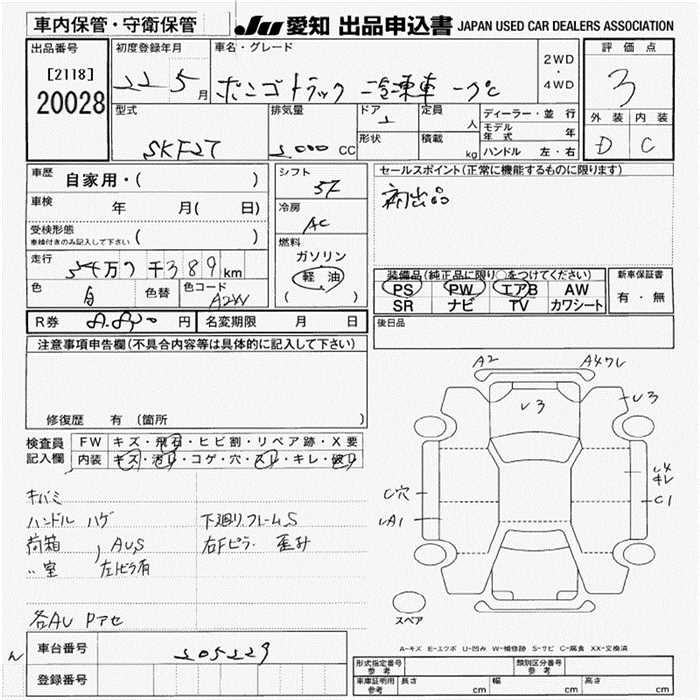 車内保管・守衛保管
JU 愛知 出品申込書 JAPAN USED CAR DEALERS ASSOCIATION
出品番号
[2118]
20028
初度登録年月
22 5月
車名・グレード
ボンゴトラック 冷凍車 -7℃
2WD
・
4WD
評価点
3
外装 内装
D C
型式
SKF27
排気量
2000 CC
ドア
2
定員
人
形状
積載
kg
ディーラー・並 行
モデル年式 年
ハンドル 左・右
車歴 自家用・( )
車検 年 月( 日)
受検形態
車検付きのみ記入して下さい ( )
走行 54万7千389km
色 白 色替 色コード A2W
シフト
5F
冷房
AC
燃料
ガソリン
軽油
( )
セールスポイント(正常に機能するものに限ります)
初出品
装備品(純正品に限り○をつけてください)
PS PW エアB AW
SR ナビ TV カワシート
新車保証書
有・無
R券 円 名変期限 月 日
後日品
注意事項申告欄(不具合内容等は具体的に記入して下さい)
修復歴 有 (箇所 )
検査員記入欄
FW キズ・飛石・ヒビ割・リペア跡・X要
内装 キズ・汚レ・コゲ・穴・スレ・キレ・破レ
キバミ
ハンドル ハゲ 下廻り.フレームS
荷箱 AUS 右Fピラ. 歪み
〃室 左ピラ有
各AU Pアセ
A2
A4ワレ
レ3
レ3
C穴
レA1
レ4
キレ
C1
スペア
A-キズ E-エクボ U-凹み W-補修跡 S-サビ C-腐食 XX-交換済
車台番号 205229
登録番号
形式指定番号 参考
類別区分番号 参考
車庫証明用 参考 長さ cm 幅 cm 高さ cm